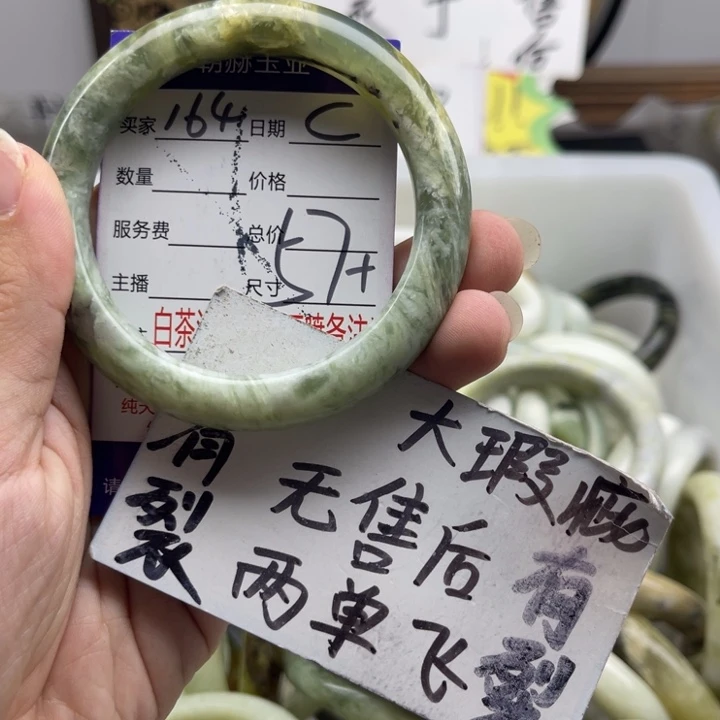 胡赫玉业
买家 164 日期 C
数量 价格
服务费 总价
主播 尺寸 57+
白茶
纯天
请
大瑕疵
有裂
无售后
有裂
两单飞
售后